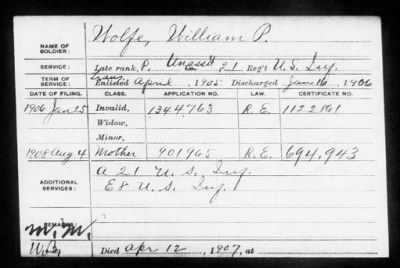 NAME OF SOLDIER: Wolfe, William P.
SERVICE: Late rank, P. Unass't 21 Reg't U.S. Inf.
TERM OF SERVICE: Enlisted April, 1905 Discharged Jan 16, 1906
DATE OF FILING. CLASS. APPLICATION NO. LAW. CERTIFICATE NO.
1906 Jan 25 Invalid, 1344763 R.E. 1122861
Widow,
Minor,
1908 Aug 4 Mother 901965 R.E. 694,943
ADDITIONAL SERVICES: A 21 U.S. Inf.
E 8 U.S. Inf.
REMARKS:
Died Apr 12, 1907, at